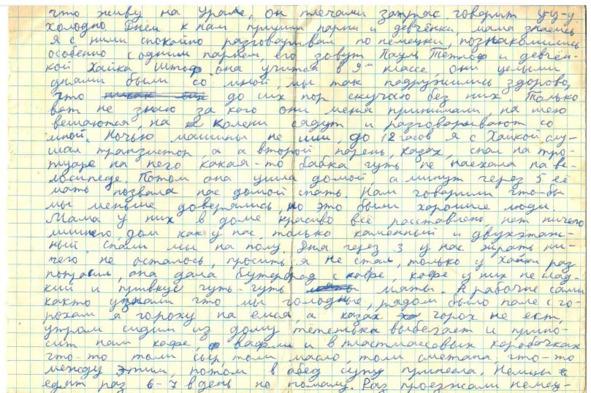 что живу на Урале, он плечами затряс говорит уу-у
холодно. Днем к нам пришли парни и девчёнки, мама знаешь
я с ними спокойно разговаривал по немецки, познакомились
особенно с одним парнем, его зовут Пауль и девчён-
кой Хайка Штоф, она учится в 9ом классе они целыми
днями были со мной, мы так подружились здорово,
что до сих пор скучаю без них. Только
вот не знаю за кого они меня принимали на шею
вешаются, на колени сядут и разговаривают со
мной. Ночью машины не шли до 12 часов я с Хайкой слу-
шал транзистор а а второй парень, казах, спал на тро-
туаре на него какая-то бабка чуть не наехала на ве-
лосипеде. Потом она ушла домой а минут через 5 её
мать позвала нас домой спать. Нам говорили что-бы
мы меньше доверялись, но это были хорошие люди
Мама у них в доме красиво всё расставлено, нет ничего
лишнего, дом как у нас только каменный и двухэтаж-
ный. Спали мы на полу. Дня через 3 у нас жрать ни-
чего не осталось, просить я не стал, только у Хайки раз
попросил, она дала бутерброд с кофе, кофе у них не слад-
кий и чуть-чуть мяты. А рабочие сами
както узнали что мы голодные, рядом было поле с го-
рохом я гороху на емся, а казах горох не ест
утром сидим из дому тетенька выбегает и прино-
сит нам кофе с вафлями и в пластмассовых коробочках
что-то толи сыр, толи масло, толи сметана что-то
между этим, потом в обед супу принесла. Немцы
едят раз 6-7 в день но помалу. Раз проезжали немец-